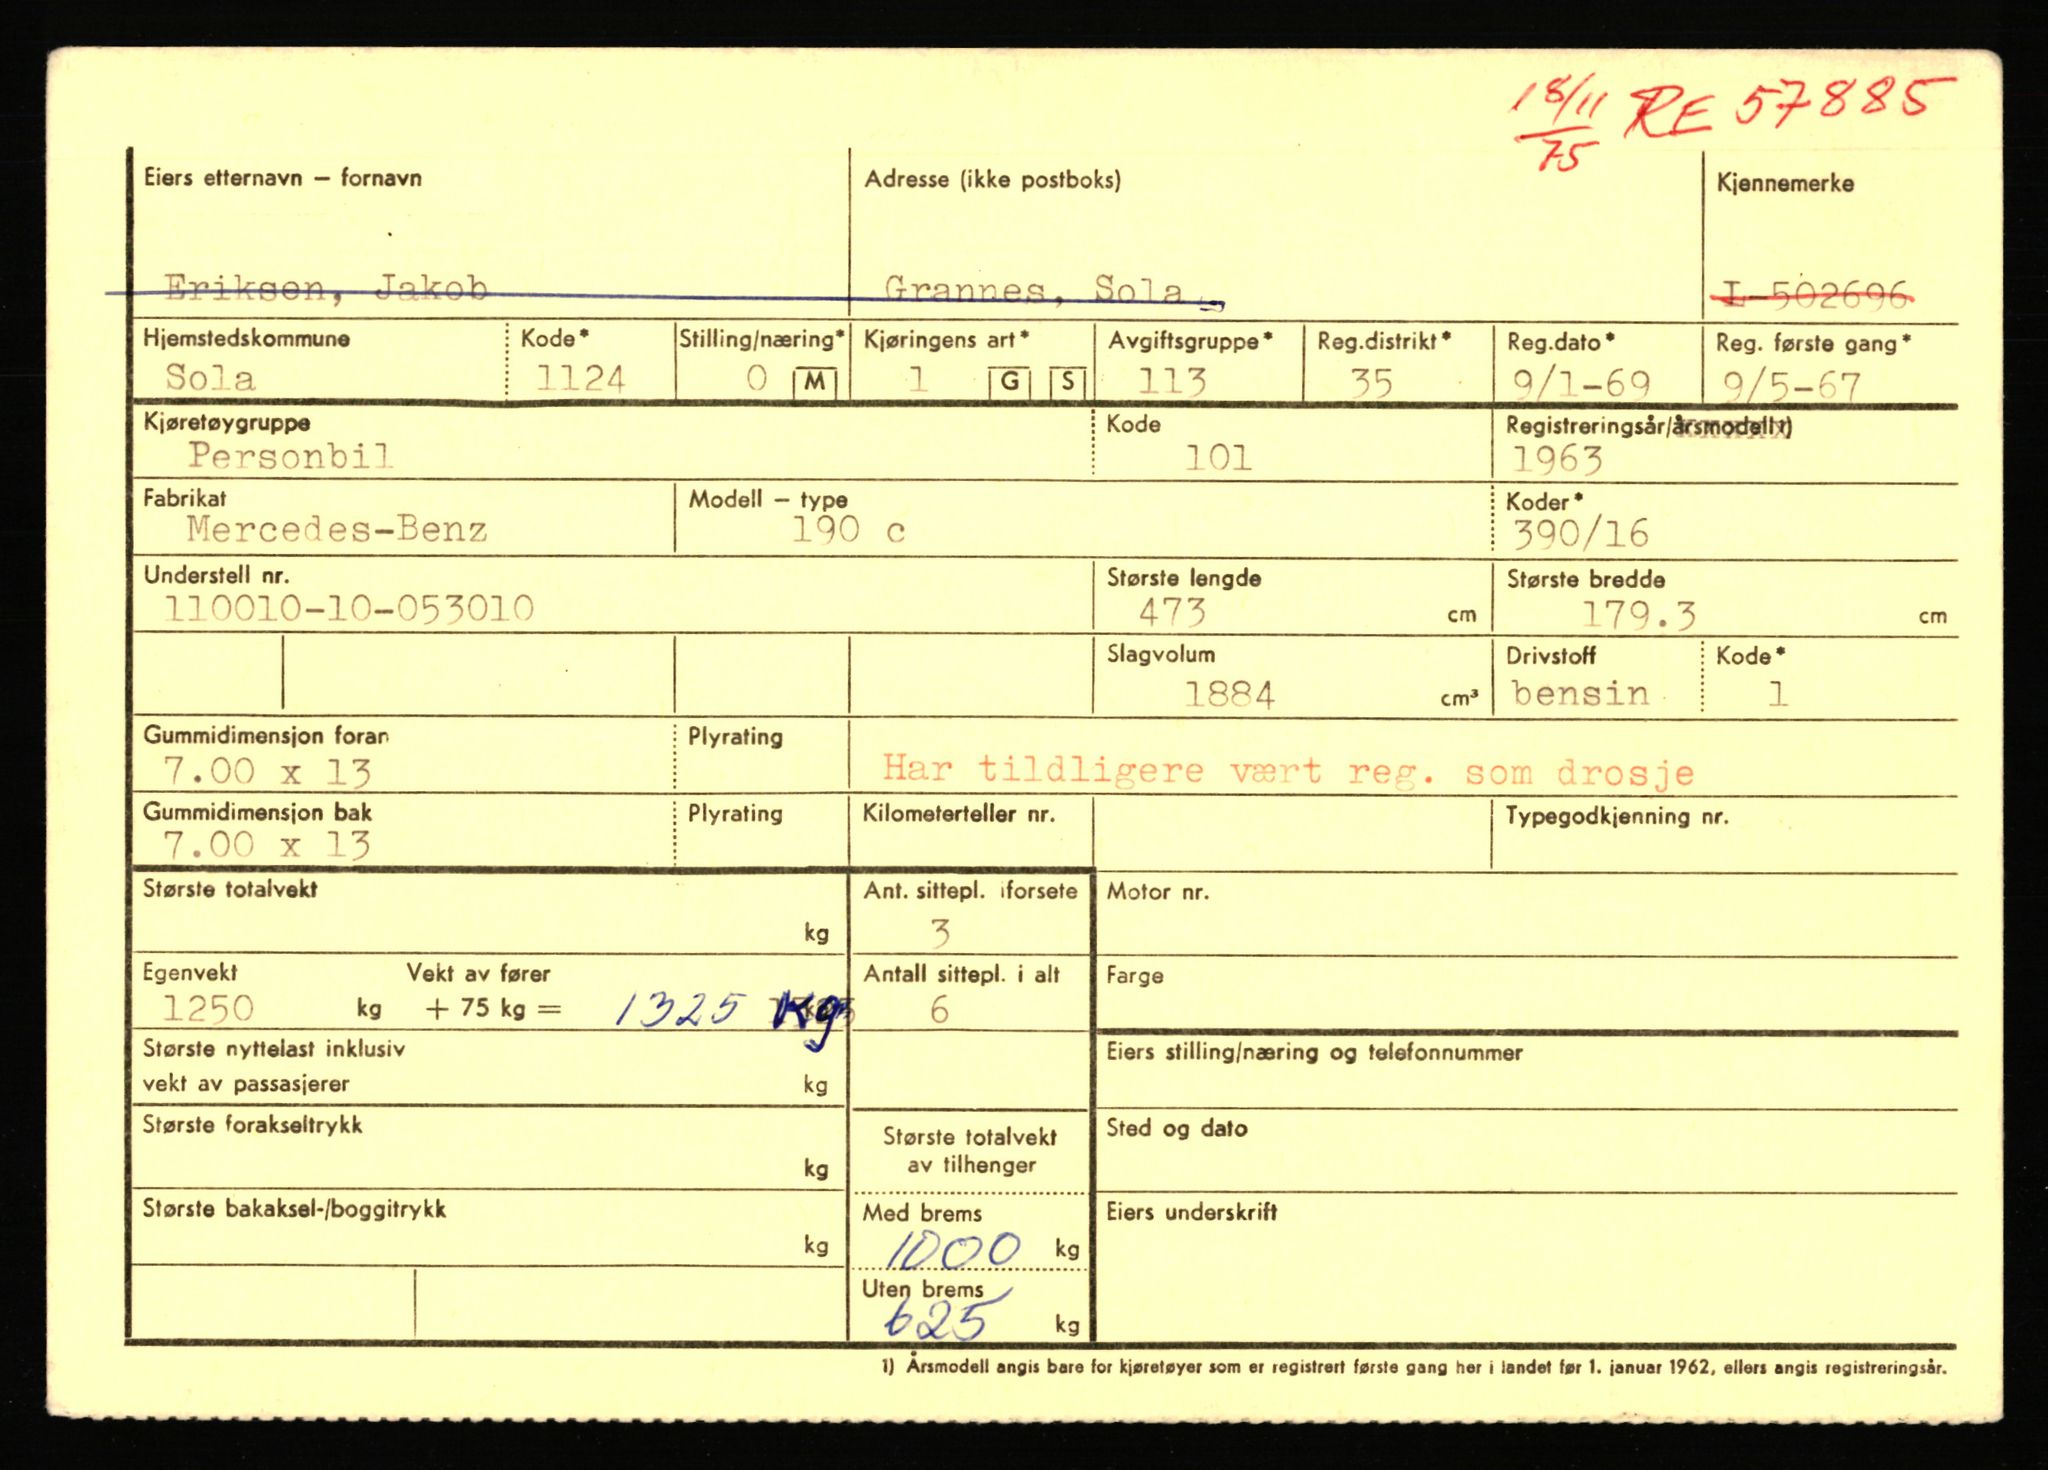 18/11 RE 57885
75
Eiers etternavn – fornavn Adresse (ikke postboks) Kjennemerke
Eriksen, Jakob Grannes, Sola L-502696
Hjemstedskommune Kode* Stilling/næring* Kjøringens art* Avgiftsgruppe* Reg.distrikt* Reg.dato* Reg. første gang*
Sola 1124 0 M 1 G S 113 35 9/1-69 9/5-67
Kjøretøygruppe Kode Registreringsår/årsmodell 1)
Personbil 101 1963
Fabrikat Modell – type Koder*
Mercedes-Benz 190 c 390/16
Understell nr. Største lengde Største bredde
110010-10-053010 473 cm 179.3 cm
Slagvolum Drivstoff Kode*
1884 cm³ bensin 1
Gummidimensjon foran Plyrating
7.00 x 13 Har tildligere vært reg. som drosje
Gummidimensjon bak Plyrating Kilometerteller nr. Typegodkjenning nr.
7.00 x 13
Største totalvekt Ant. sittepl. i forsete Motor nr.
kg 3
Egenvekt Vekt av fører Antall sittepl. i alt Farge
1250 kg + 75 kg = 1325 Kg 6
Største nyttelast inklusiv Eiers stilling/næring og telefonnummer
vekt av passasjerer kg
Største forakseltrykk Største totalvekt Sted og dato
kg av tilhenger
Største bakaksel-/boggitrykk Med brems Eiers underskrift
kg 1000 kg
Uten brems
625 kg
1) Årsmodell angis bare for kjøretøyer som er registrert første gang her i landet før 1. januar 1962, ellers angis registreringsår.